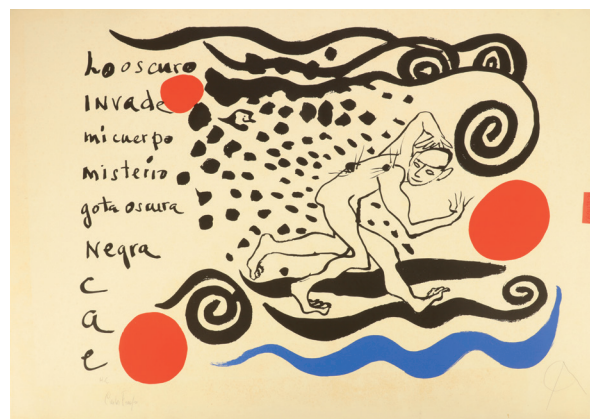 Lo oscuro
INVADE
mi cuerpo
misterio
gota oscura
Negra
C
a
e